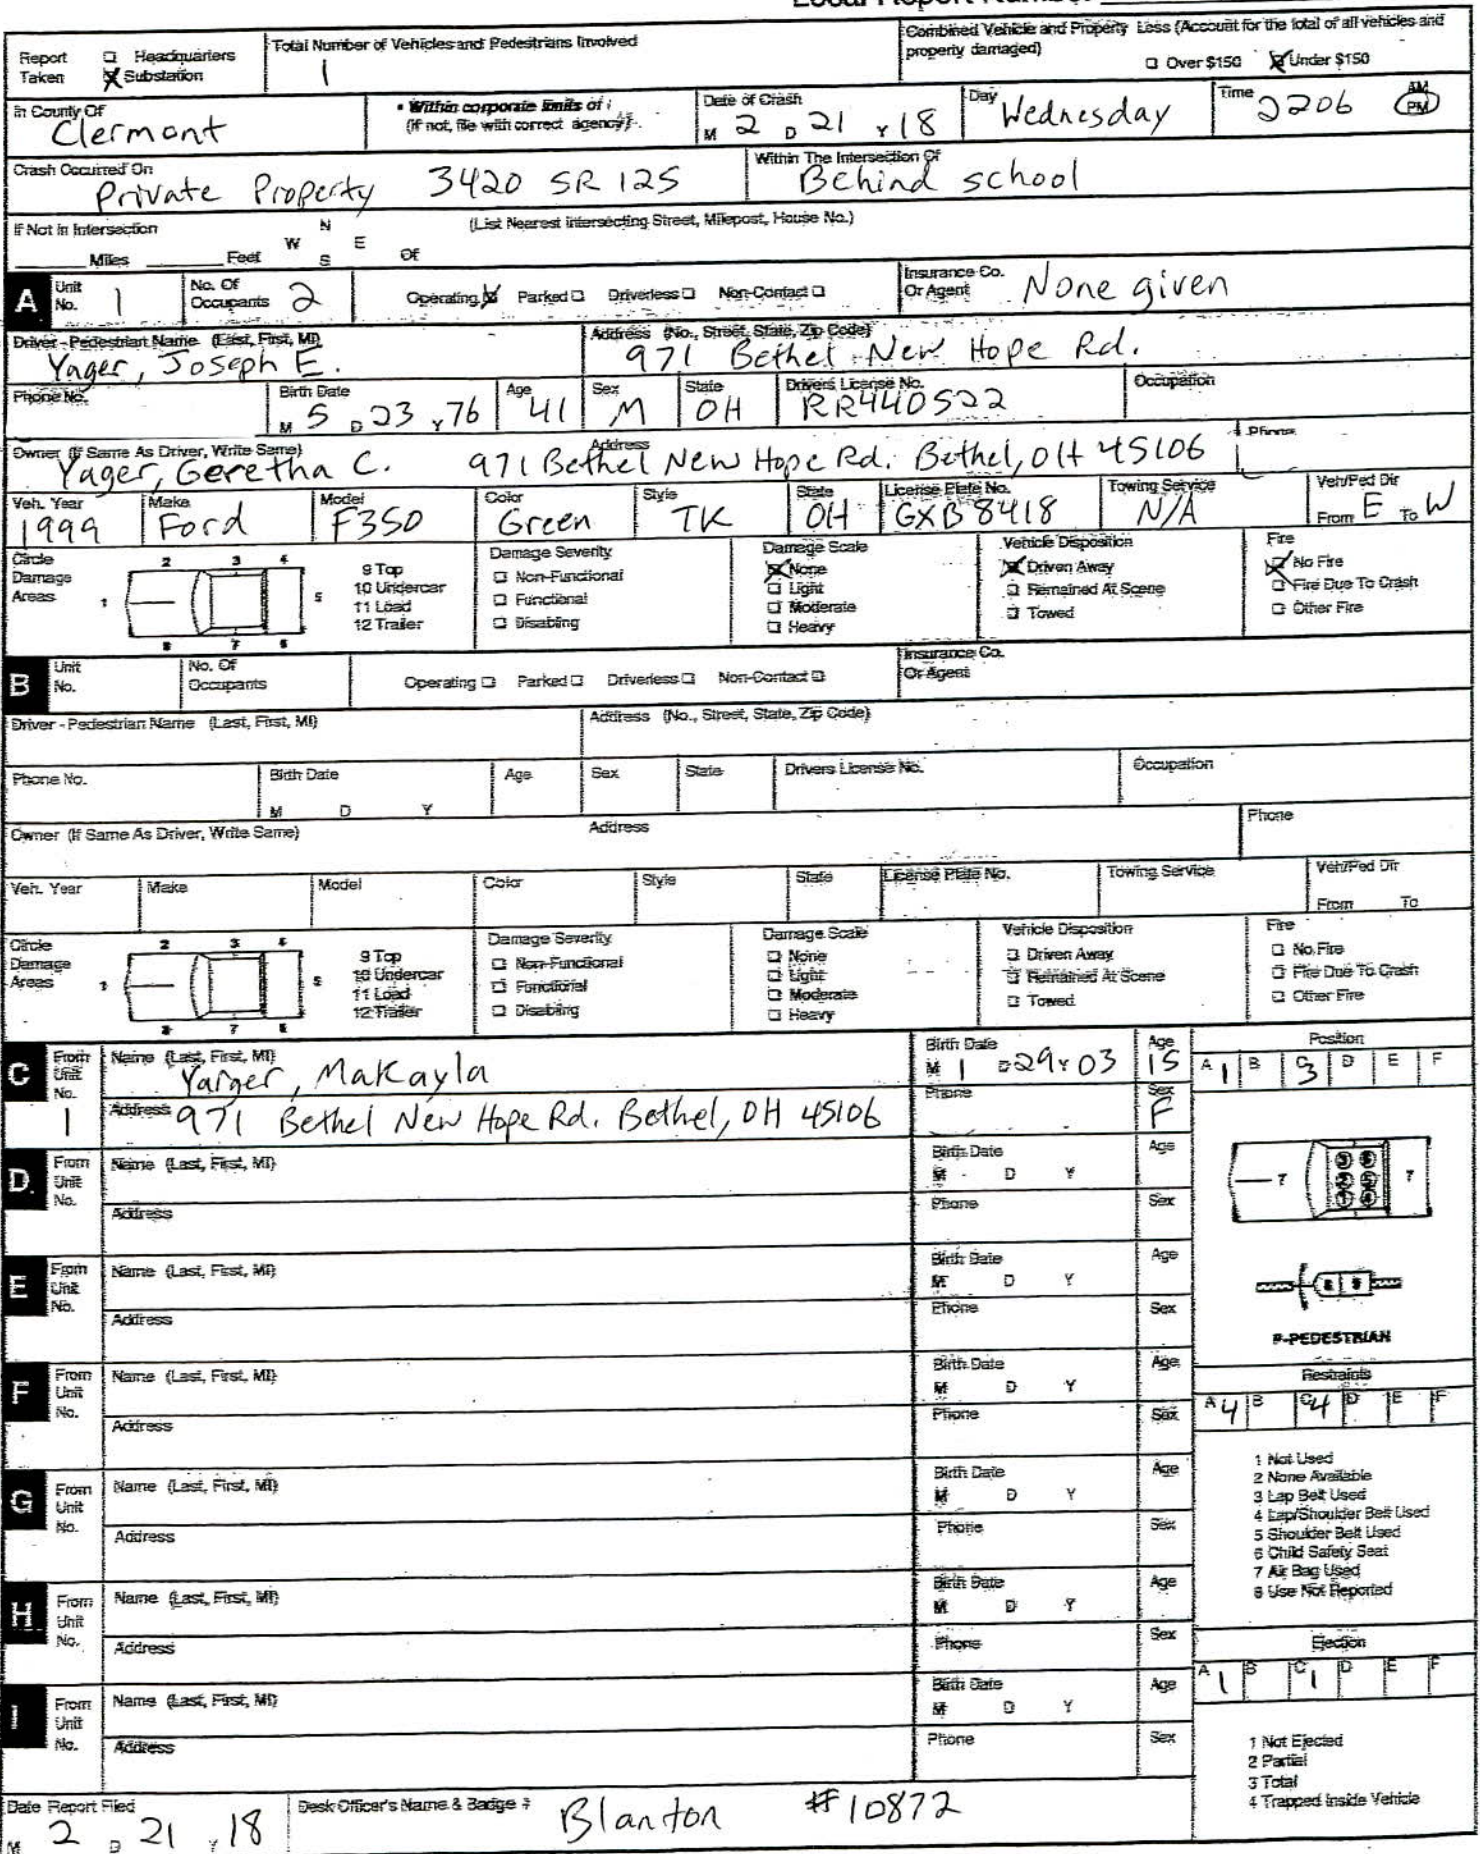 Local Report Number
Report Taken ☐ Headquarters ☒ Substation
Total Number of Vehicles and Pedestrians Involved 1
Combined Vehicle and Property Loss (Account for the total of all vehicles and property damaged) ☐ Over $150 ☒ Under $150
In County Of Clermont
• Within corporate limits of : (if not, file with correct agency)
Date of Crash M 2 D 21 Y 18
Day Wednesday
Time 2206 AM PM
Crash Occurred On Private Property 3420 SR 125
Within The Intersection Of Behind school
If Not in Intersection (List Nearest Intersecting Street, Milepost, House No.)
Miles Feet N W E S Of
A Unit No. 1 No. Of Occupants 2 Operating ☒ Parked ☐ Driverless ☐ Non-Contact ☐ Insurance Co. Or Agent None given
Driver - Pedestrian Name (Last, First, MI) Yager, Joseph E.
Address (No., Street, State, Zip Code) 971 Bethel New Hope Rd.
Phone No. Birth Date M 5 D 23 Y 76 Age 41 Sex M State OH Drivers License No. RR440522 Occupation
Owner (If Same As Driver, Write Same) Yager, Geretha C. Address 971 Bethel New Hope Rd. Bethel, OH 45106 Phone
Veh. Year 1999 Make Ford Model F350 Color Green Style TK State OH License Plate No. GXB 8418 Towing Service N/A Veh/Ped Dir From E To W
Circle Damage Areas 1 2 3 4 5 6 7 8
9 Top
10 Undercar
11 Load
12 Trailer
Damage Severity
☐ Non-Functional
☐ Functional
☐ Disabling
Damage Scale
☒ None
☐ Light
☐ Moderate
☐ Heavy
Vehicle Disposition
☒ Driven Away
☐ Remained At Scene
☐ Towed
Fire
☒ No Fire
☐ Fire Due To Crash
☐ Other Fire
B Unit No. No. Of Occupants Operating ☐ Parked ☐ Driverless ☐ Non-Contact ☐ Insurance Co. Or Agent
Driver - Pedestrian Name (Last, First, MI) Address (No., Street, State, Zip Code)
Phone No. Birth Date M D Y Age Sex State Drivers License No. Occupation
Owner (If Same As Driver, Write Same) Address Phone
Veh. Year Make Model Color Style State License Plate No. Towing Service Veh/Ped Dir From To
Circle Damage Areas 1 2 3 4 5 6 7 8
9 Top
10 Undercar
11 Load
12 Trailer
Damage Severity
☐ Non-Functional
☐ Functional
☐ Disabling
Damage Scale
☐ None
☐ Light
☐ Moderate
☐ Heavy
Vehicle Disposition
☐ Driven Away
☐ Remained At Scene
☐ Towed
Fire
☐ No Fire
☐ Fire Due To Crash
☐ Other Fire
C From Unit No. 1 Name (Last, First, MI) Yarger, MaKayla Birth Date M 1 D 29 Y 03 Age 15
Address 971 Bethel New Hope Rd. Bethel, OH 45106 Phone Sex F
Position
A 1 B C 3 D E F
D. From Unit No. Name (Last, First, MI) Birth Date M D Y Age
Address Phone Sex
7 3 6 2 5 1 4 7
E From Unit No. Name (Last, First, MI) Birth Date M D Y Age
Address Phone Sex
8 9
P-PEDESTRIAN
F From Unit No. Name (Last, First, MI) Birth Date M D Y Age
Address Phone Sex
Restraints
A 4 B C 4 D E F
G From Unit No. Name (Last, First, MI) Birth Date M D Y Age
Address Phone Sex
1 Not Used
2 None Available
3 Lap Belt Used
4 Lap/Shoulder Belt Used
5 Shoulder Belt Used
6 Child Safety Seat
7 Air Bag Used
8 Use Not Reported
H From Unit No. Name (Last, First, MI) Birth Date M D Y Age
Address Phone Sex
Ejection
A 1 B C 1 D E F
I From Unit No. Name (Last, First, MI) Birth Date M D Y Age
Address Phone Sex
1 Not Ejected
2 Partial
3 Total
4 Trapped Inside Vehicle
Date Report Filed M 2 D 21 Y 18
Desk Officer's Name & Badge # Blanton #10872